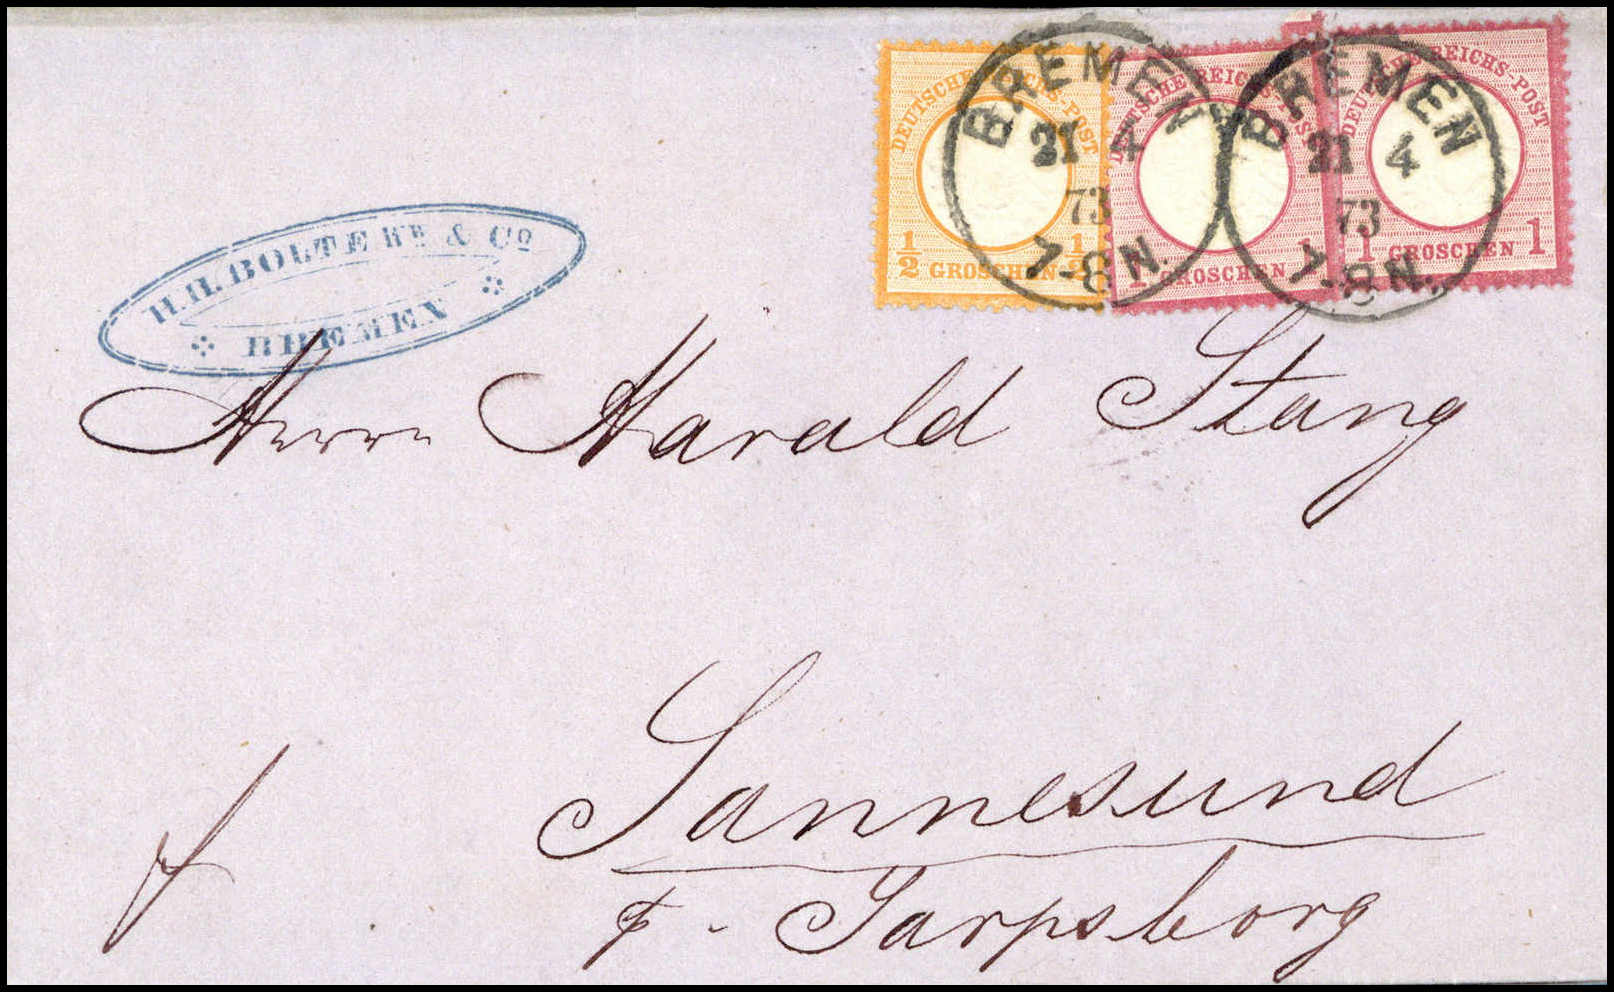 H.H. BOLTE WE & Co
BREMEN
DEUTSCHE REICHS-POST
1/2 GROSCHEN 1/2
DEUTSCHE REICHS-POST
1 GROSCHEN 1
DEUTSCHE REICHS-POST
1 GROSCHEN 1
BREMEN
21 4
73
7-8 N.
BREMEN
21 4
73
7-8 N.
Herrn Harald Stang
Sannesund
p. Sarpsborg